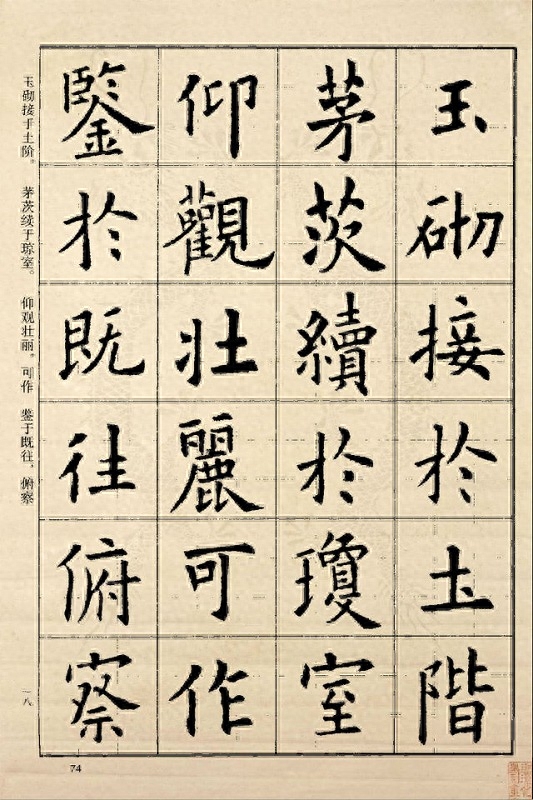 玉砌接於土階
茅茨續於瓊室
仰觀壯麗可作
鑒於既往俯察
玉砌接于土阶。 茅茨续于琼室。 仰观壮丽。可作 鉴于既往，俯察
一八
74